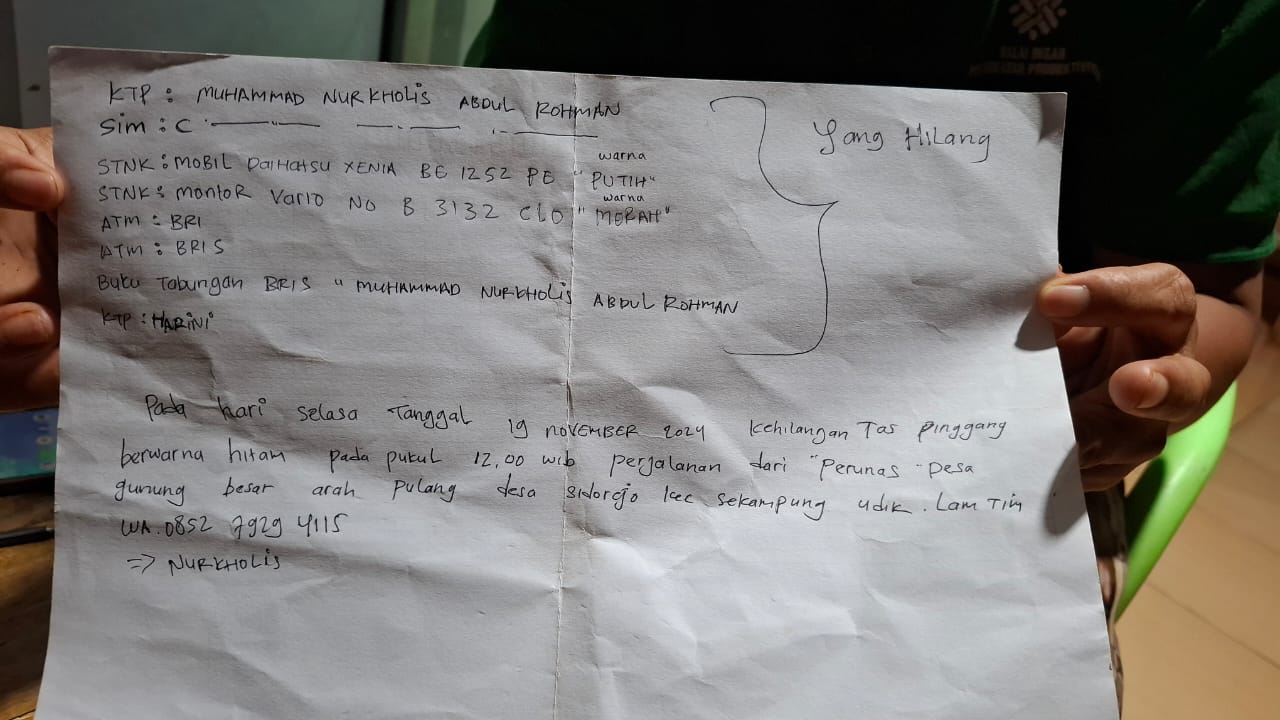 KTP : MUHAMMAD NURKHOLIS ABDUL ROHMAN
Sim : C
Yang Hilang
STNK : MOBIL DAIHATSU XENIA BE 1252 PE "PUTIH"
warna
STNK : montor Vario No B 3132 CLO "MERAH"
warna
ATM : BRI
ATM : BRIS
Buku Tabungan BRIS " MUHAMMAD NURKHOLIS ABDUL ROHMAN
KTP : HARINI
Pada hari selasa Tanggal 19 NOVEMBER 2024 kehilangan Tas pinggang
berwarna hitam pada pukul 12,00 wib perjalanan dari "Perunas" Desa
gunung besar arah pulang desa sidorejo kec sekampung udik. Lam Tim
WA. 0852 7929 4115
=> NURKHOLIS